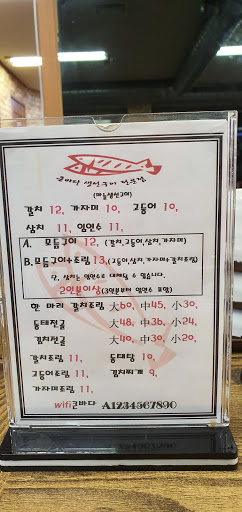 큰바다 생선구이 전문점
(마늘생선구이)
갈치 12, 가자미 10, 고등어 10,
삼치 11, 임연수 11,
A. 모듬구이 12, (갈치,고등어,삼치,가자미)
B. 모듬구이+조림 13, (고등어,삼치,가자미+갈치조림)
단, 삼치는 임연수로 대체될 수 있습니다.
2인분이상(3인분부터 임연수 포함)
한 마리 갈치조림 大60, 中45, 小30,
동태전골 大48, 中36, 小24,
김치전골 大40, 中30, 小20,
갈치조림 11, 동태탕 10,
고등어조림 11, 김치찌개 9,
가자미조림 11,
wifi큰바다 A123456789O